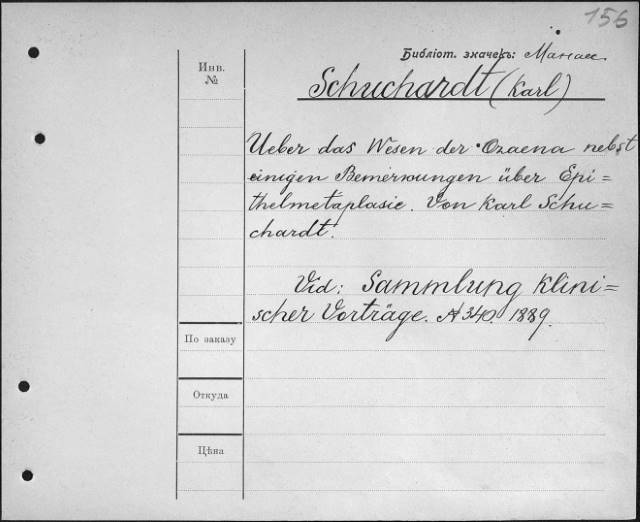 156
Библіот. значекъ:
Инв.
№
Schuchardt (Karl)
Ueber das Wesen der Ozaena nebst
einigen Bemerkungen über Epi=
thelmetaplasie. Von Karl Schu=
chardt.
Vid: Sammlung klini=
scher Vorträge. № 340. 1889.
По заказу
Откуда
Цѣна